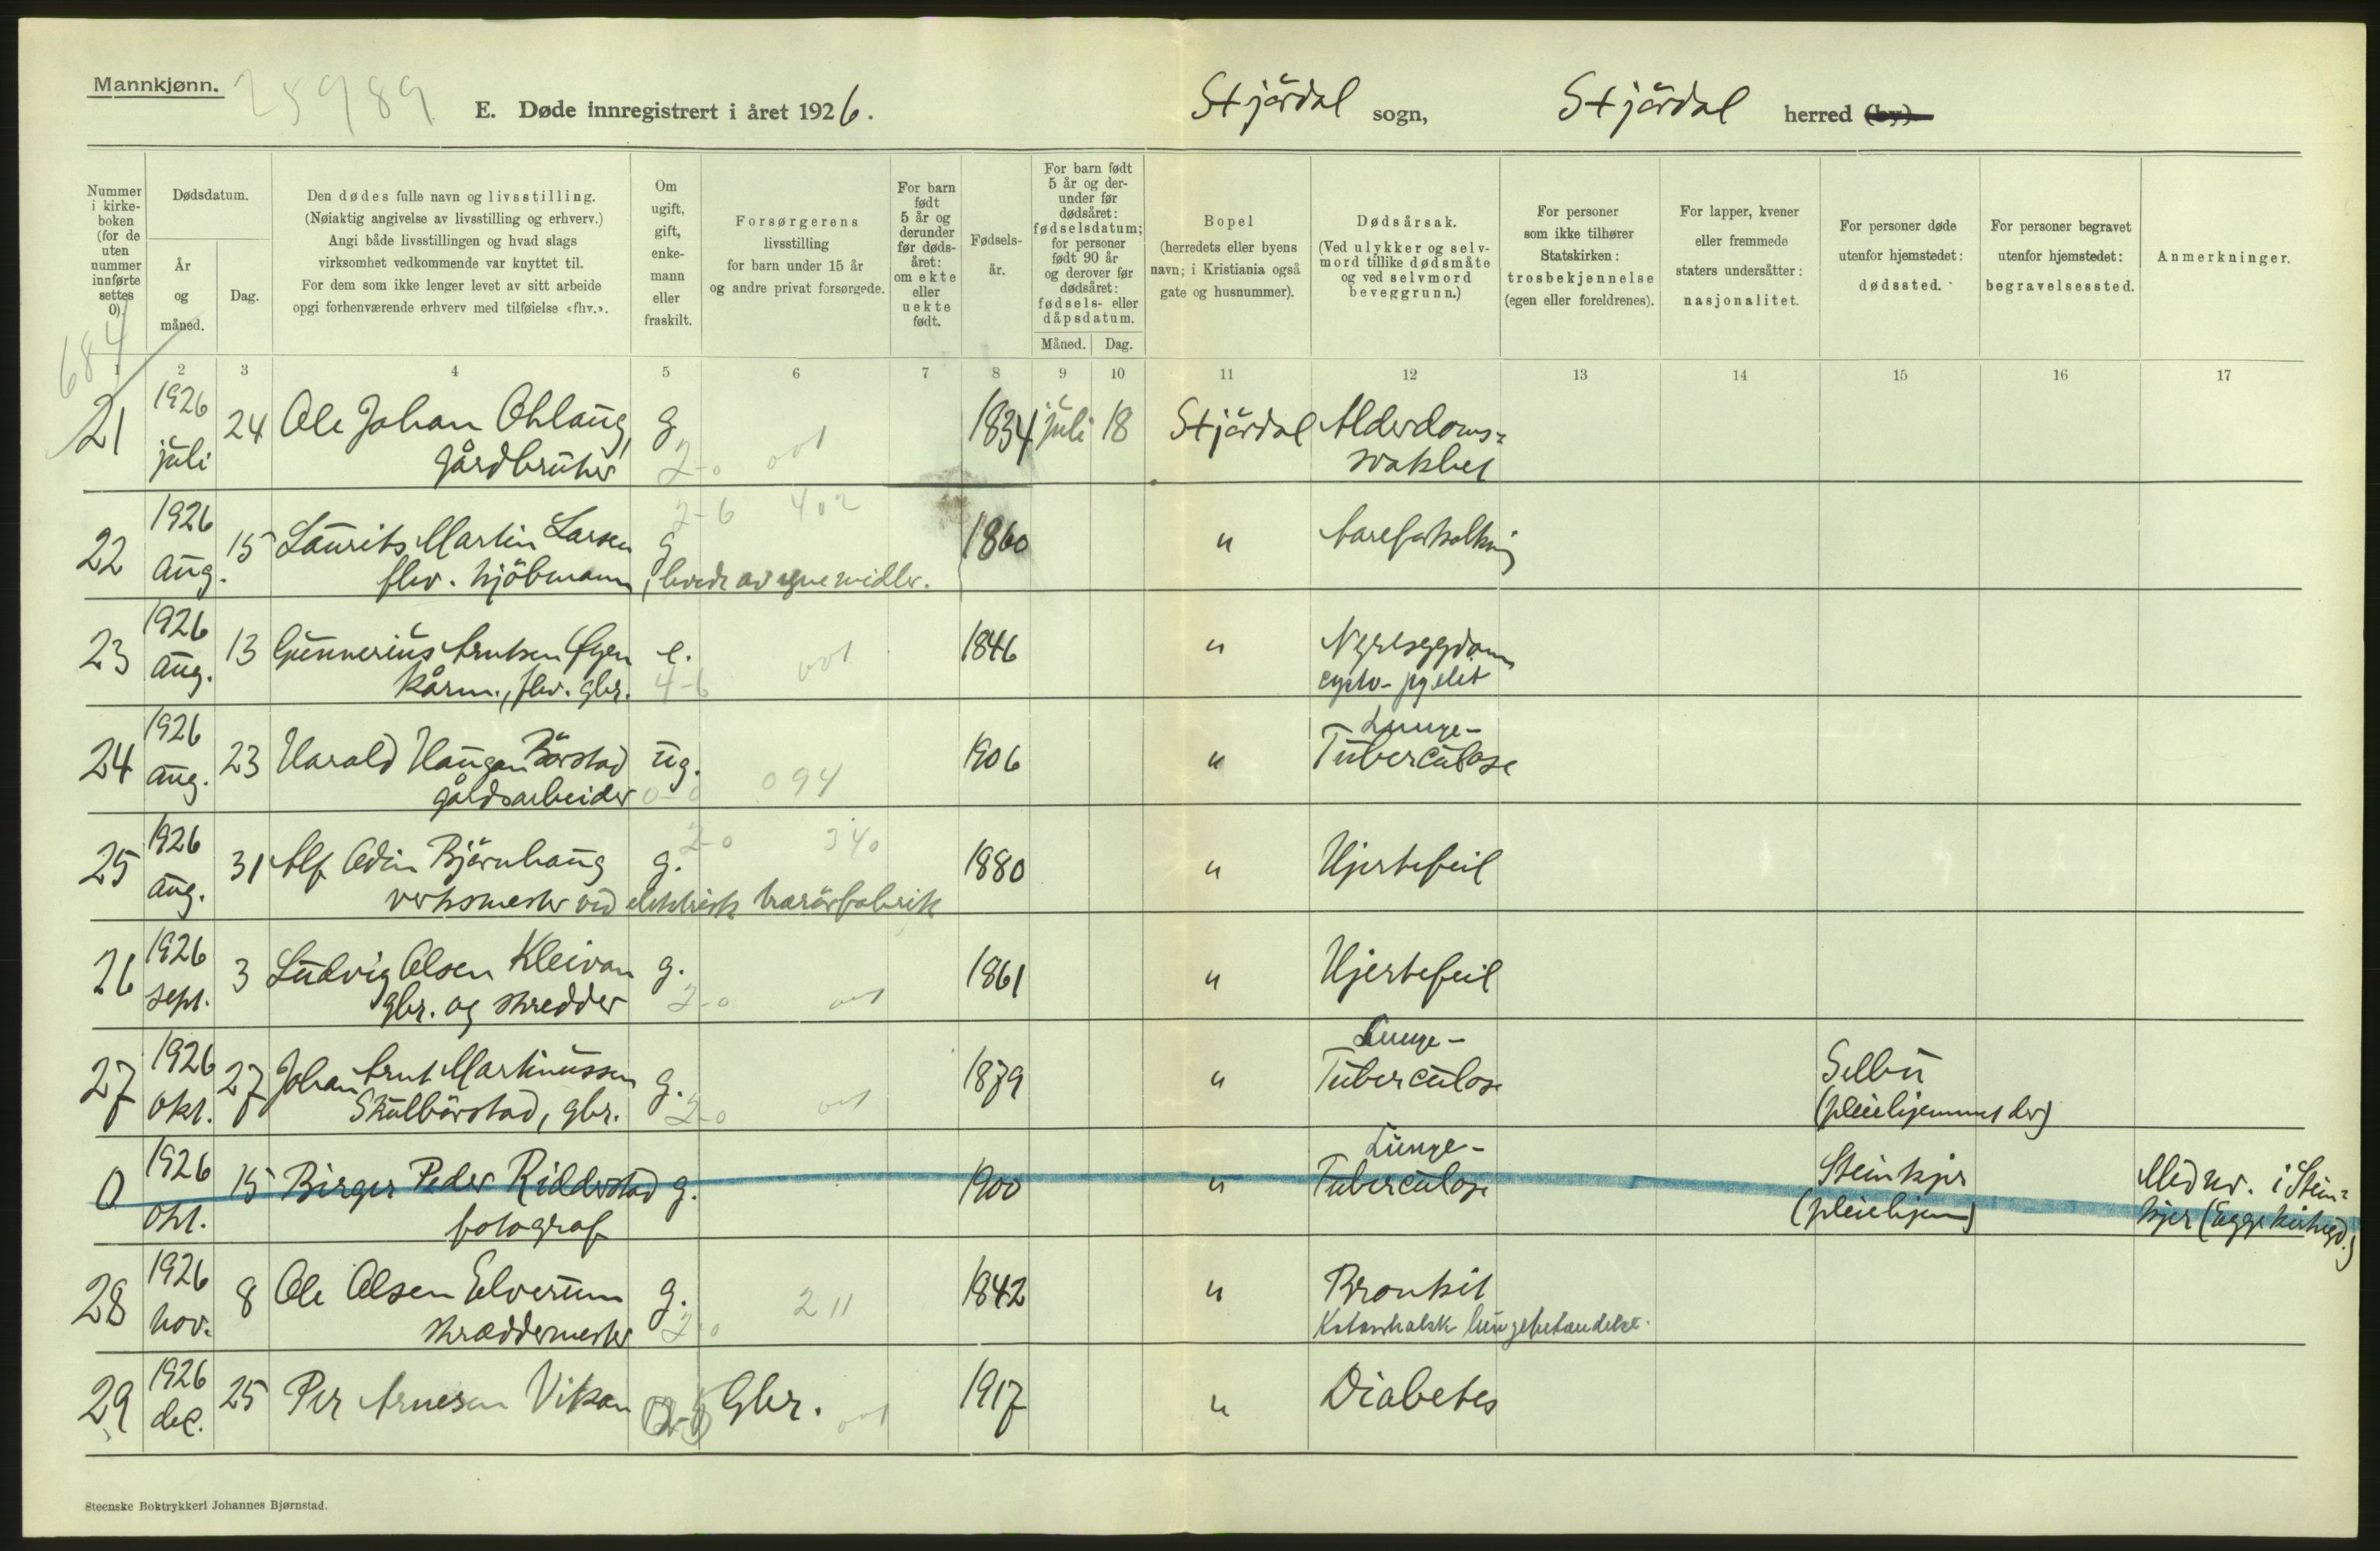 Mannkjønn.
25989
E. Døde innregistrert i året 1926.
Stjördal sogn,
Stjördal herred (by).
Nummer i kirke-boken (for de uten nummer innførte settes 0).
Dødsdatum.
År og måned.
Dag.
Den dødes fulle navn og livsstilling.
(Nøiaktig angivelse av livsstilling og erhverv.)
Angi både livsstillingen og hvad slags
virksomhet vedkommende var knyttet til.
For dem som ikke lenger levet av sitt arbeide
opgi forhenværende erhverv med tilføielse «fhv.».
Om ugift, gift, enke-mann eller fraskilt.
Forsørgerens
livsstilling
for barn under 15 år
og andre privat forsørgede.
For barn født 5 år og derunder før døds-året: om ekte eller uekte født.
Fødsels-år.
For barn født 5 år og der-under før dødsåret: fødselsdatum; for personer født 90 år og derover før dødsåret: fødsels- eller dåpsdatum.
Måned.
Dag.
Bopel
(herredets eller byens
navn; i Kristiania også
gate og husnummer).
Dødsårsak.
(Ved ulykker og selv-
mord tillike dødsmåte
og ved selvmord
beveggrunn.)
For personer
som ikke tilhører
Statskirken:
trosbekjennelse
(egen eller foreldrenes).
For lapper, kvener
eller fremmede
staters undersåtter:
nasjonalitet.
For personer døde
utenfor hjemstedet:
dødssted.
For personer begravet
utenfor hjemstedet:
begravelsessted.
Anmerkninger.
684
1 2 3 4 5 6 7 8 9 10 11 12 13 14 15 16 17
21 1926 juli 24 Ole Johan Ohlaug, g 1834 juli 18 Stjördal Alderdoms-
gårdbruker 2-0 001 svakhet
2-6 402
22 1926 aug. 15 Laurits Martin Larsen g 1860 " Åreforkalkning
fhv. kjöbmann, levde av egne midler.
23 1926 aug. 13 Gunnerius Arntsen Öyen e. 001 1846 " Nyresygdom
kårm., fhv. gbr. 4-6 cysto-pyelit
24 1926 aug. 23 Harald Haugan Börstad ug. 1906 " Lunge-
Tuberculose
gårdsarbeider 0-0 094
2-0 340
25 1926 aug. 31 Alf Odin Björnhaug g. 1880 " Hjertefeil
verksmester ved elektrisk trærörfabrik
26 1926 sept. 3 Ludvig Olsen Kleivan g. 1861 " Hjertefeil
gbr. og skredder 2-0 001
27 1926 okt. 27 Johan Arnt Martinussen g. 1879 " Lunge-
Tuberculose Selbu
Skulbörstad, gbr. 2-0 001 (pleiehjemmet der)
0 1926 okt. 15 Birger Peder Ridderstad g. 1900 " Lunge-
Tuberculose Steinkjer Med nr. i Stein-
fotograf (pleiehjem) kjer (Egge kirkegd.)
28 1926 nov. 8 Ole Olsen Elverum g. 211 1842 " Bronkit
skræddermester 2-0 Katarrhalsk lungebetændelse.
29 1926 dec. 25 Per Arnesen Vikan Gbr. 001 1917 " Diabetes
Steenske Boktrykkeri Johannes Bjørnstad.